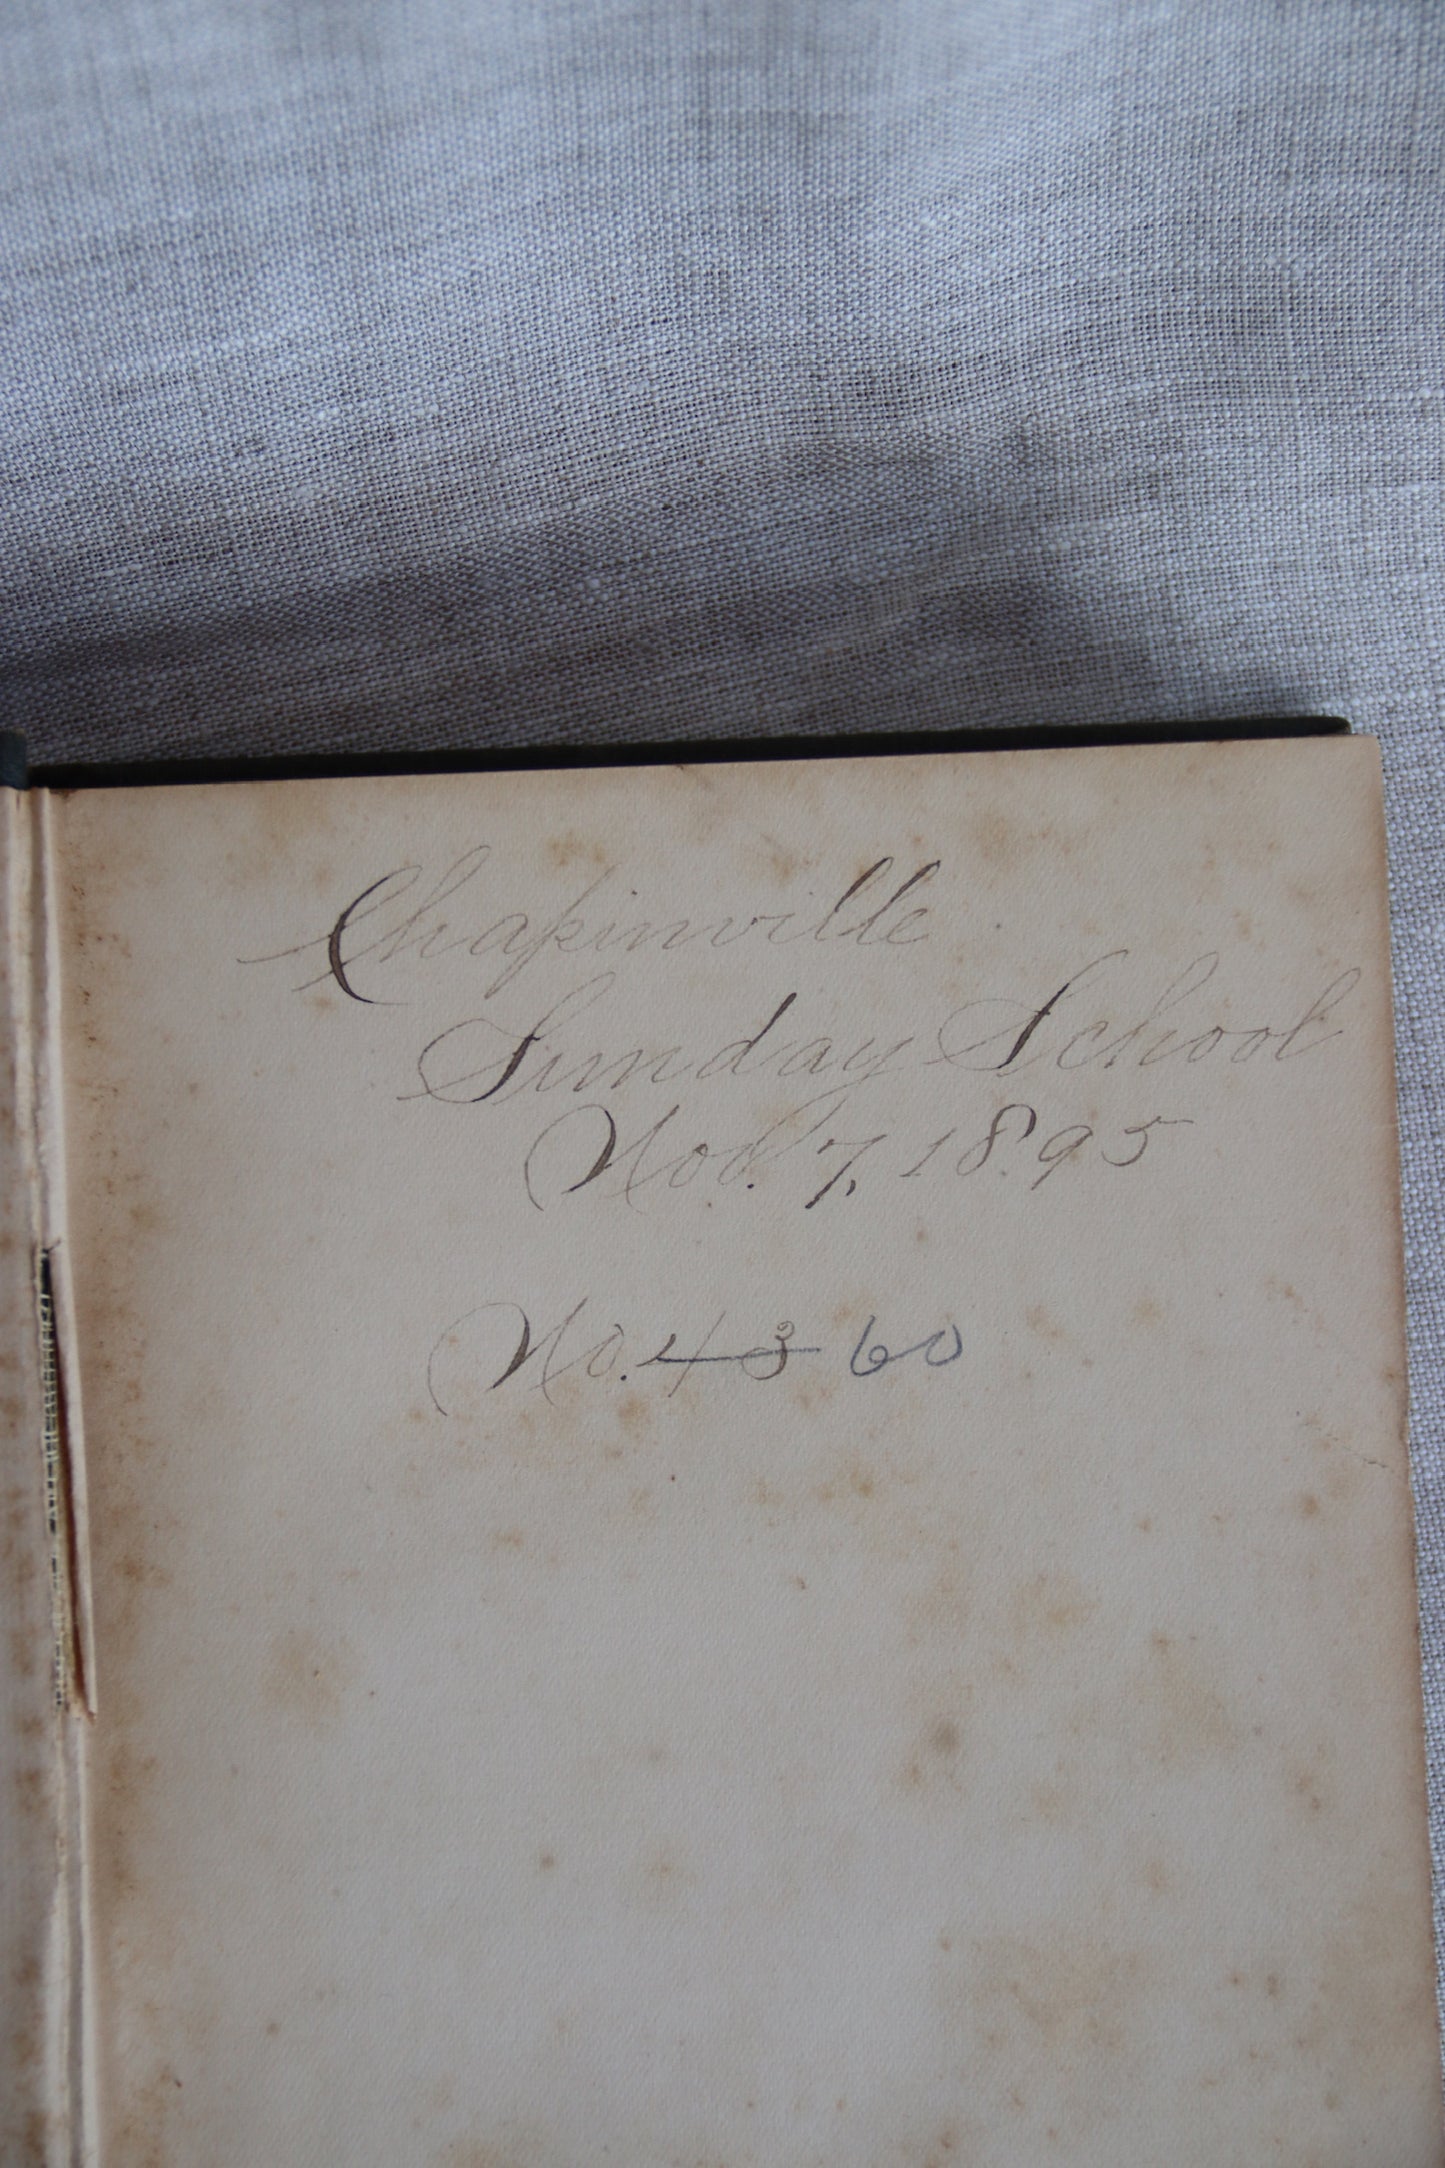 Chapinville
Sunday School
Nov. 7, 1895
No. 43 60